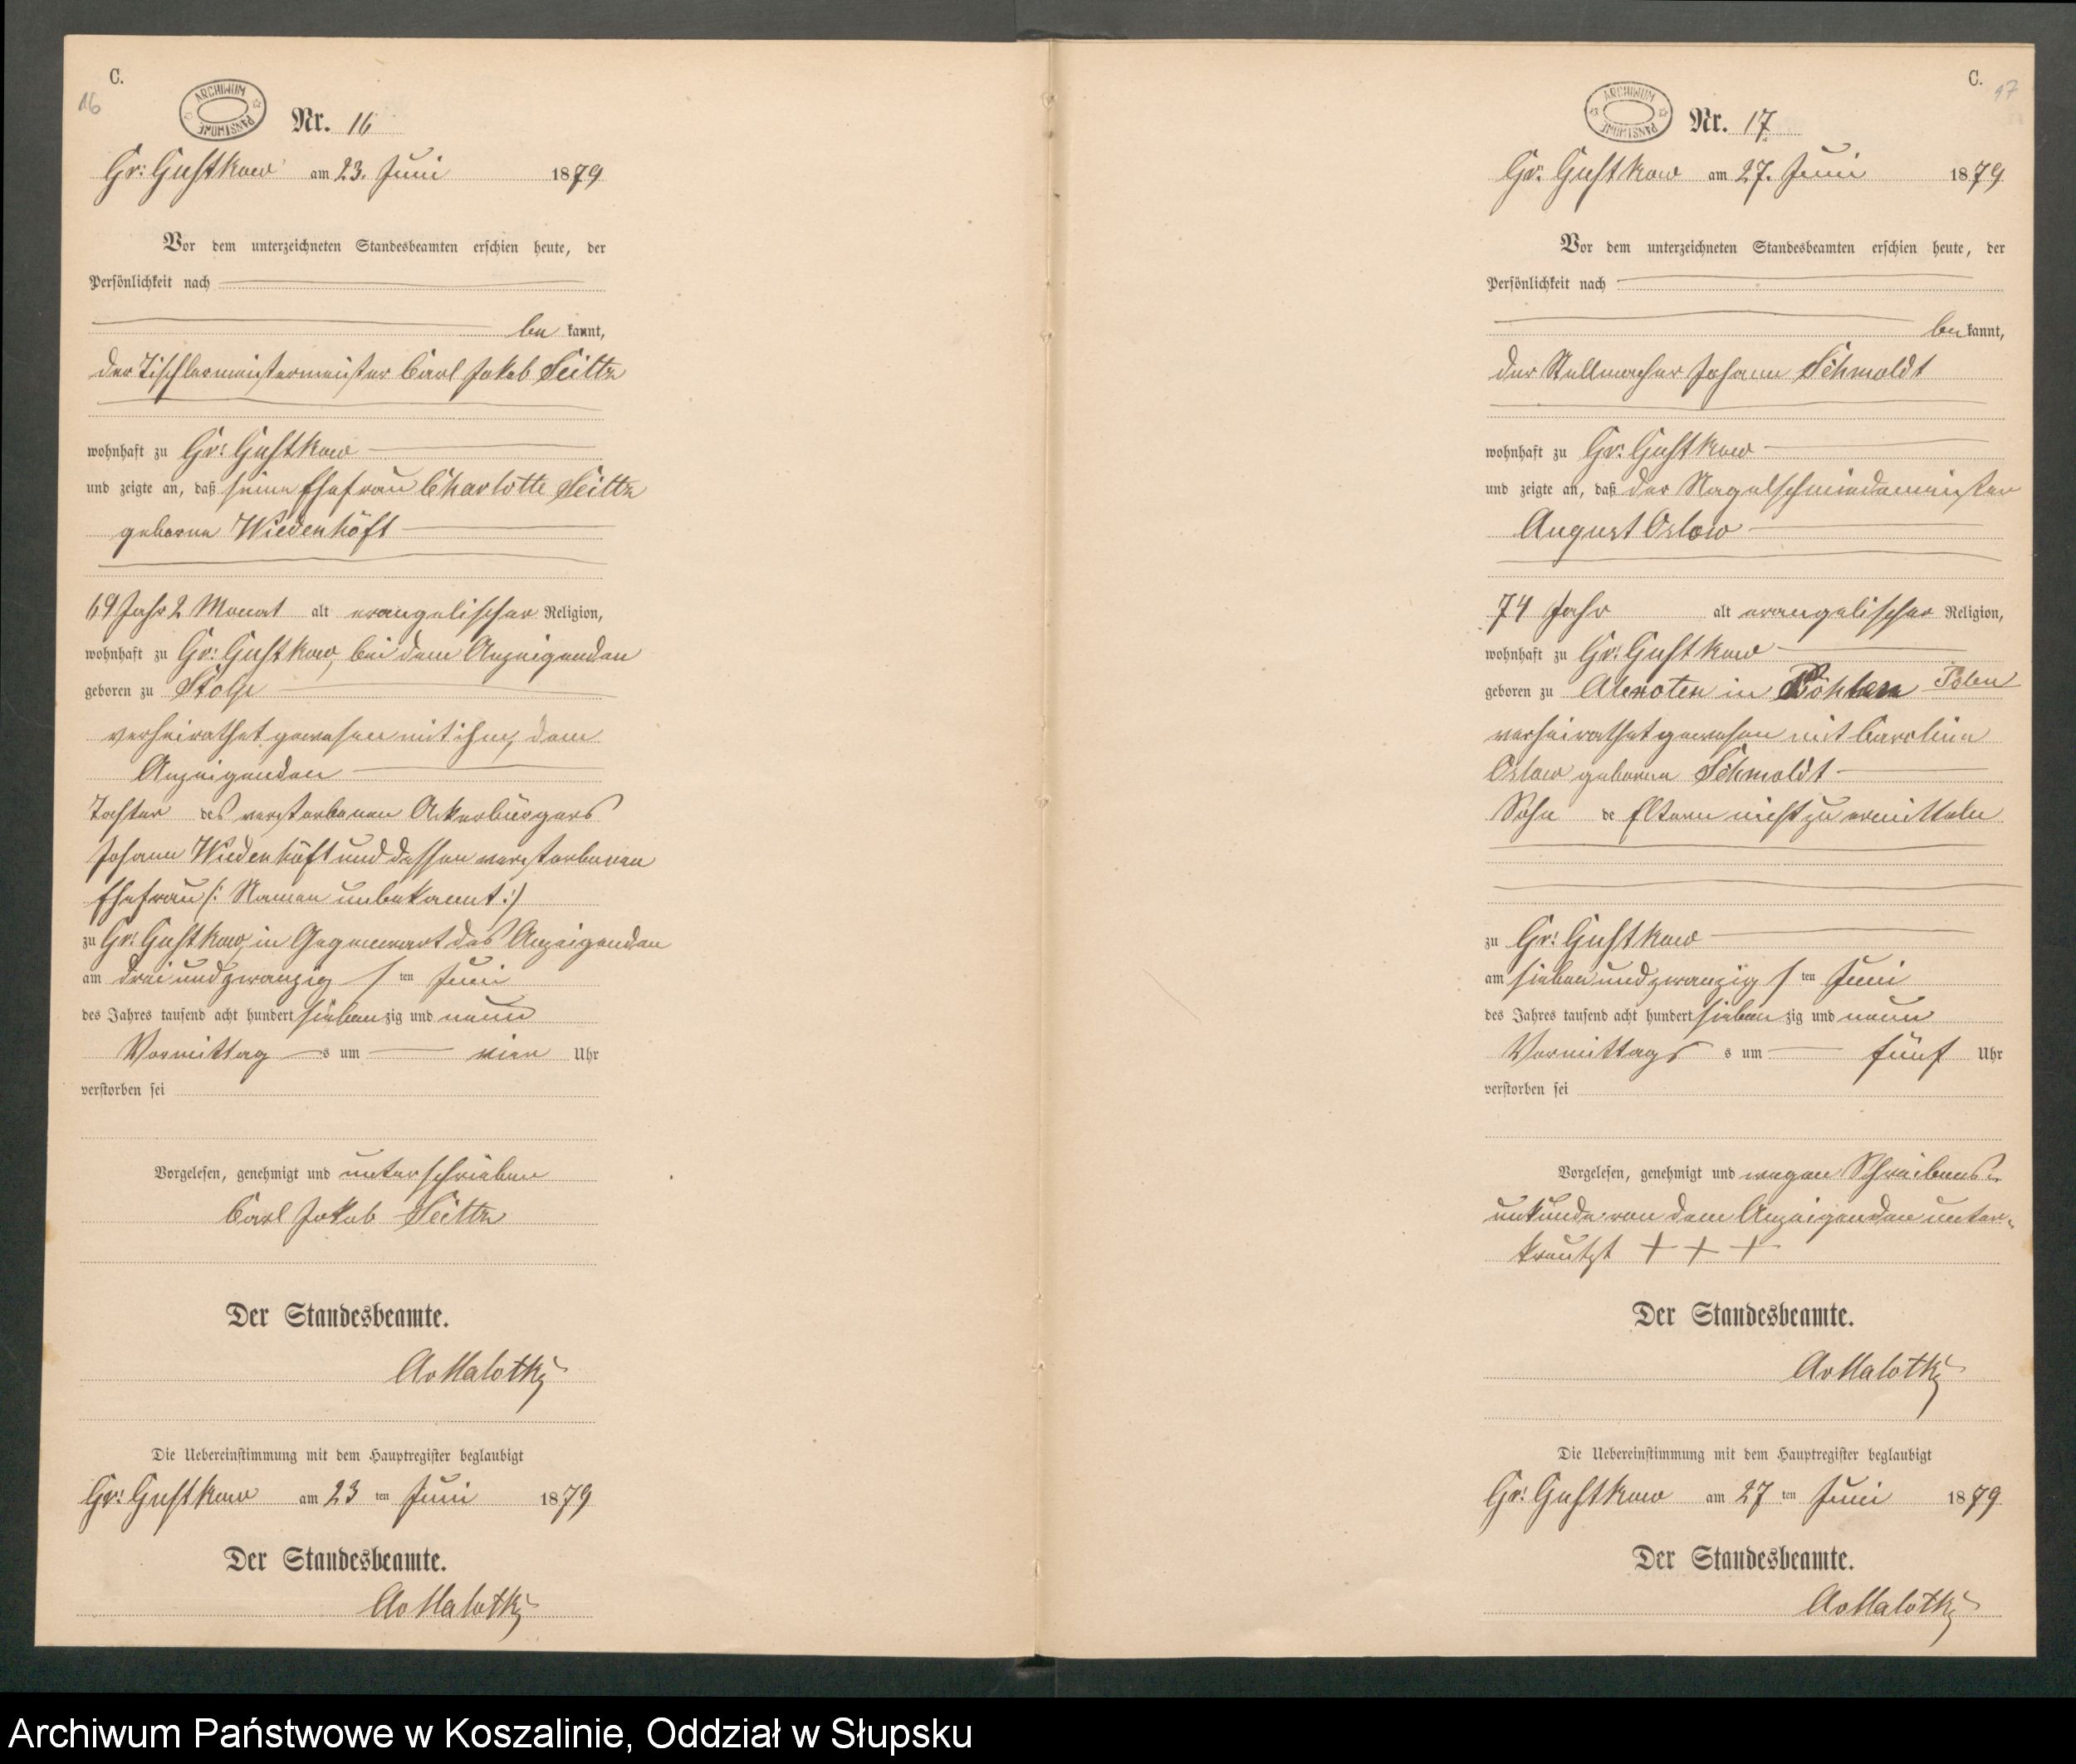 C.
16
ARCHIWUM PAŃSTWOWE
Nr. 16
Gr: Gustkow am 23. Juni 1879
Vor dem unterzeichneten Standesbeamten erschien heute, der
Persönlichkeit nach
be kannt,
der Tischlermeistermeister Carl Jakob Seittz
wohnhaft zu Gr: Gustkow
und zeigte an, daß seine Ehefrau Charlotte Seittz
geborne Wiedenhöft
69 Jahr 2 Monat alt evangelischer Religion,
wohnhaft zu Gr: Gustkow, bei dem Anzeigenden
geboren zu Stolp
verheirathet gewesen mit ihm, dem
Anzeigenden
Tochter des verstorbenen Ackerbürgers
Johann Wiedenhöft und dessen verstorbenen
Ehefrau (: Namen unbekannt :)
zu Gr: Gustkow, in Gegenwart des Anzeigenden
am drei und zwanzig ten Juni
des Jahres tausend acht hundert sieben zig und neun
Vormittag s um vier Uhr
verstorben sei
Vorgelesen, genehmigt und unterschrieben
Carl Jakob Seittz
Der Standesbeamte.
AvMalotky
Die Uebereinstimmung mit dem Hauptregister beglaubigt
Gr: Gustkow am 23 ten Juni 1879
Der Standesbeamte.
AvMalotky
C.
17
ARCHIWUM PAŃSTWOWE
Nr. 17
Gr: Gustkow am 27. Juni 1879
Vor dem unterzeichneten Standesbeamten erschien heute, der
Persönlichkeit nach
be kannt,
der Stellmacher Johann Schmoldt
wohnhaft zu Gr: Gustkow
und zeigte an, daß der Nagelschmiedemeister
August Oslow
74 Jahr alt evangelischer Religion,
wohnhaft zu Gr: Gustkow
geboren zu in Polen
verheirathet gewesen mit Caroline
Oslow geborne Schmoldt
Sohn de Eltern nicht zu ermitteln
zu Gr: Gustkow
am sieben und zwanzig ten Juni
des Jahres tausend acht hundert sieben zig und neun
Vormittags s um fünf Uhr
verstorben sei
Vorgelesen, genehmigt und wegen Schreibens-
unkunde von dem Anzeigenden unter-
kreutzt + + +
Der Standesbeamte.
AvMalotky
Die Uebereinstimmung mit dem Hauptregister beglaubigt
Gr: Gustkow am 27 ten Juni 1879
Der Standesbeamte.
AvMalotky
Archiwum Państwowe w Koszalinie, Oddział w Słupsku